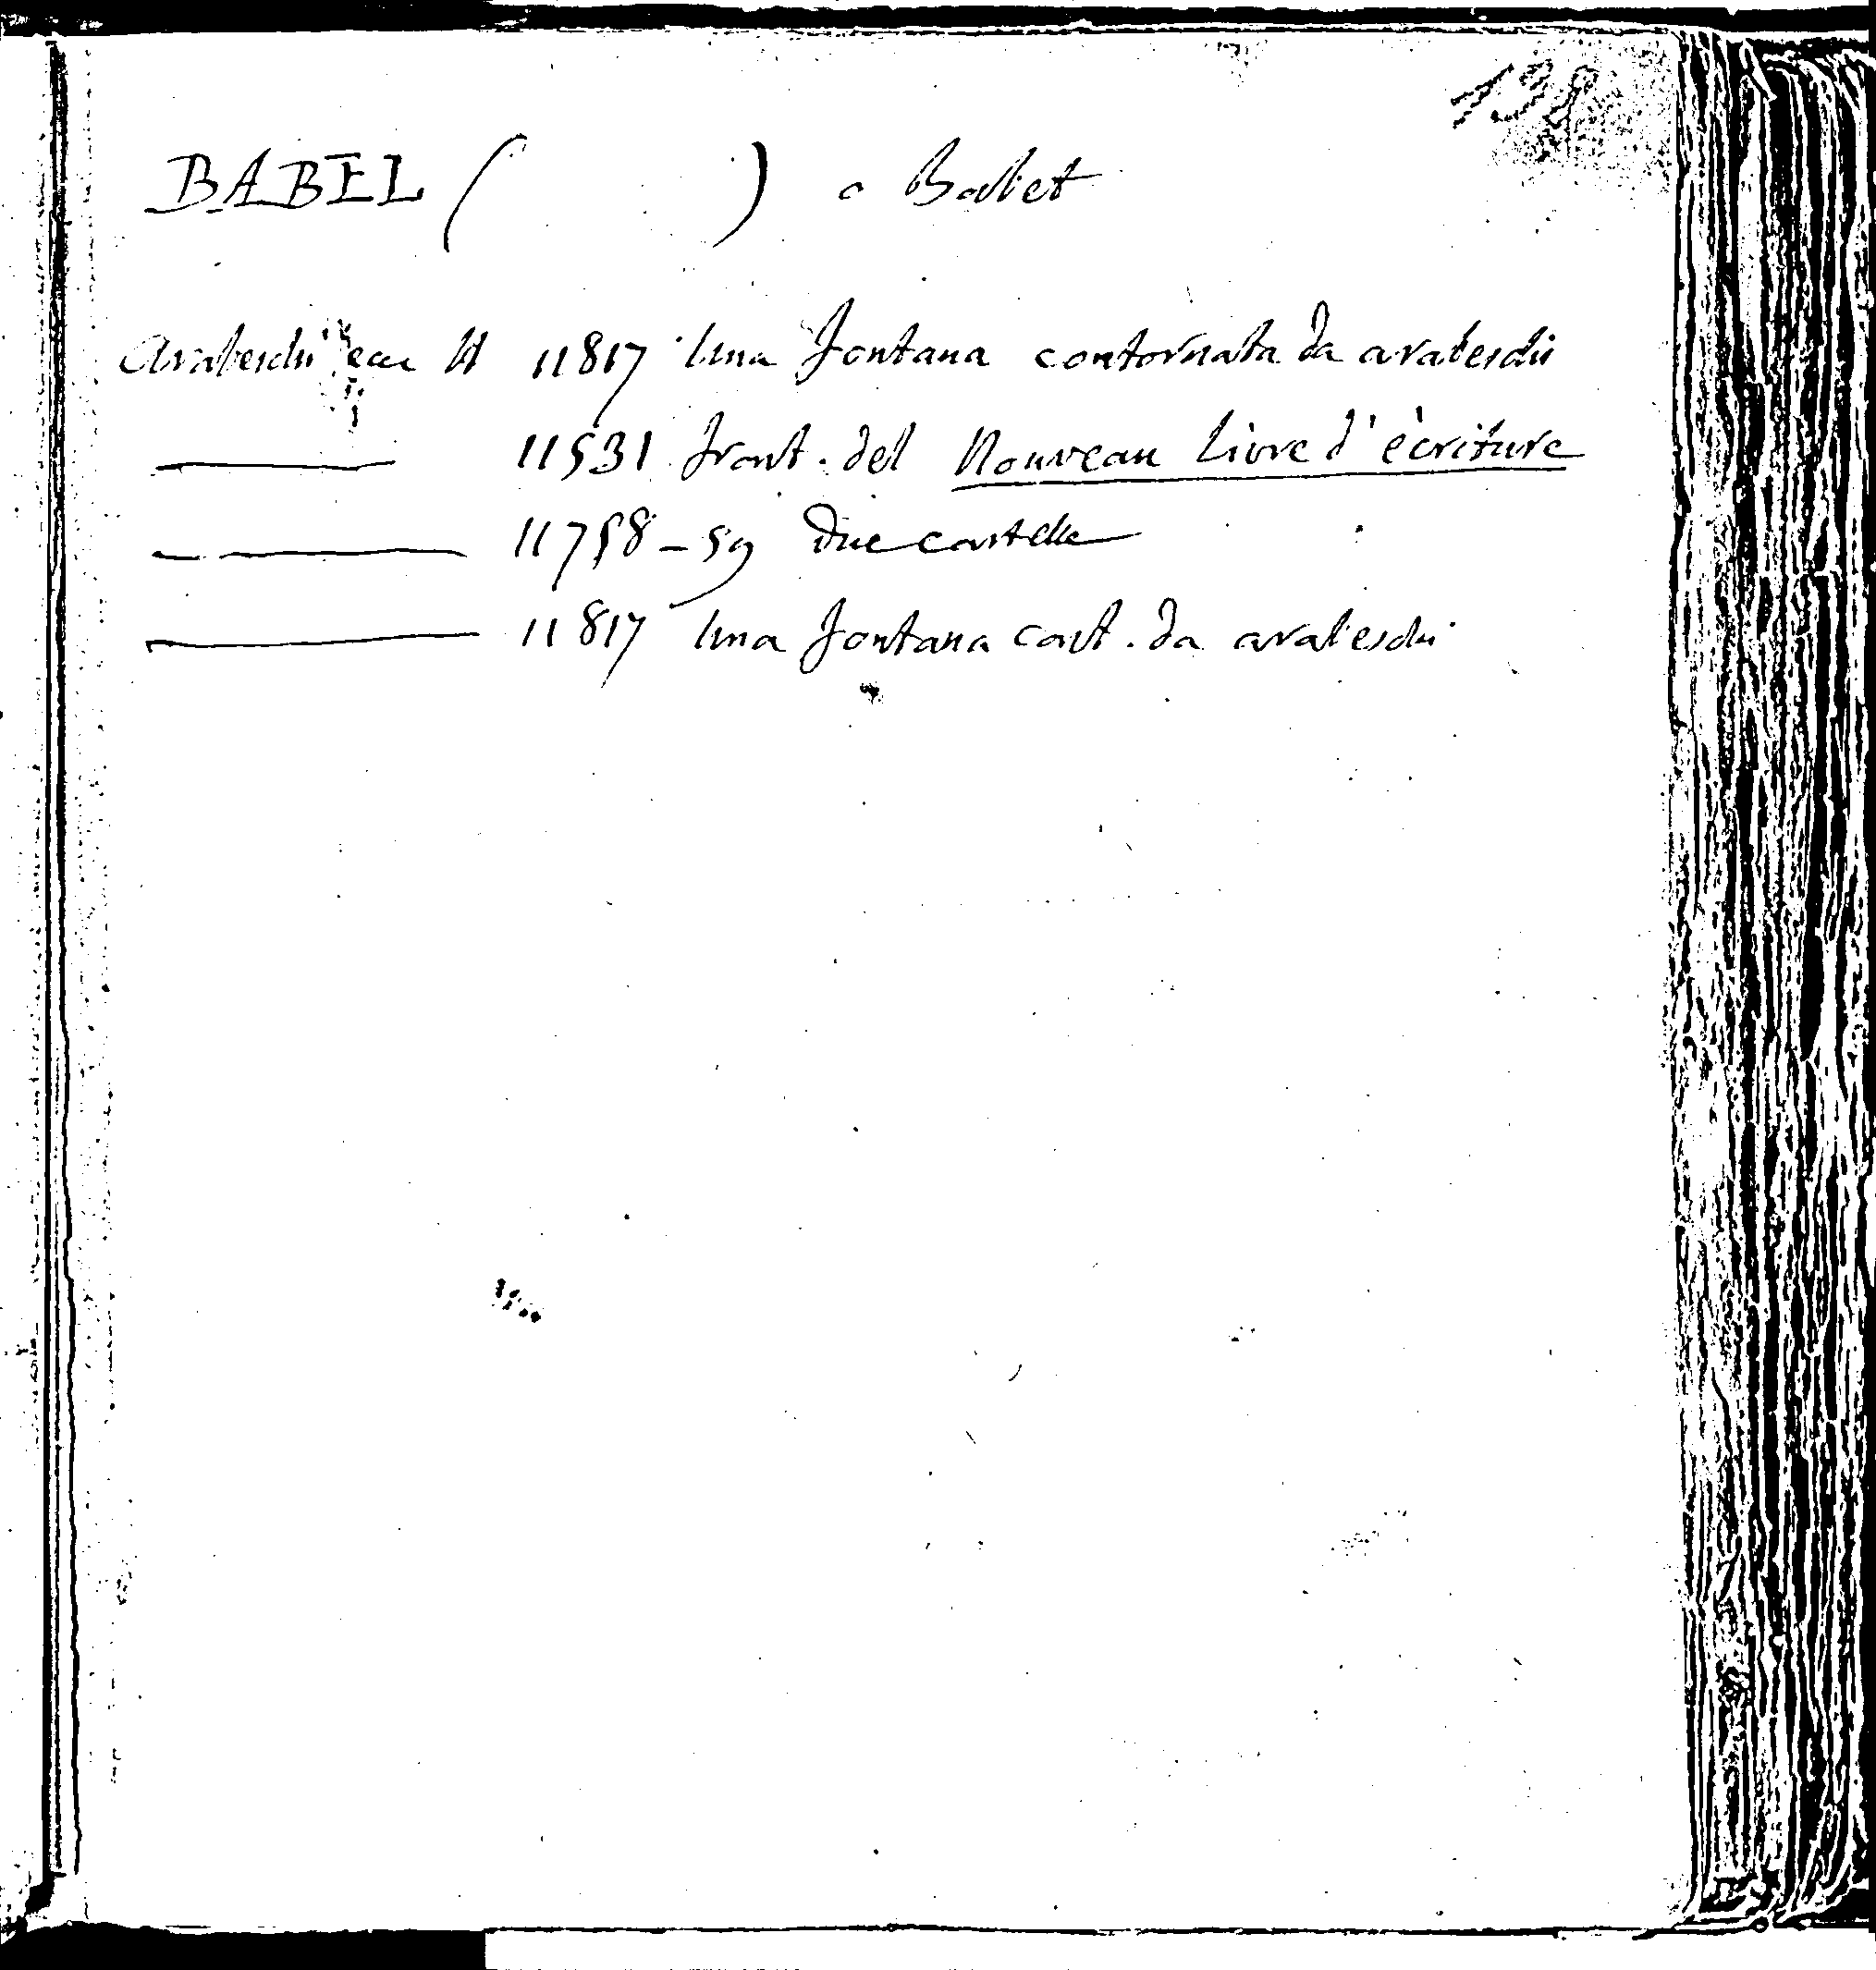 191
BABEL ( ) o Babet
Arabeschi ecc H 11817 Una fontana contornata da arabeschi
—— 11531 front. del Nouveau livre d'écriture
—— 11758-59 Due cartelle
—— 11817 Una fontana cont. da arabeschi